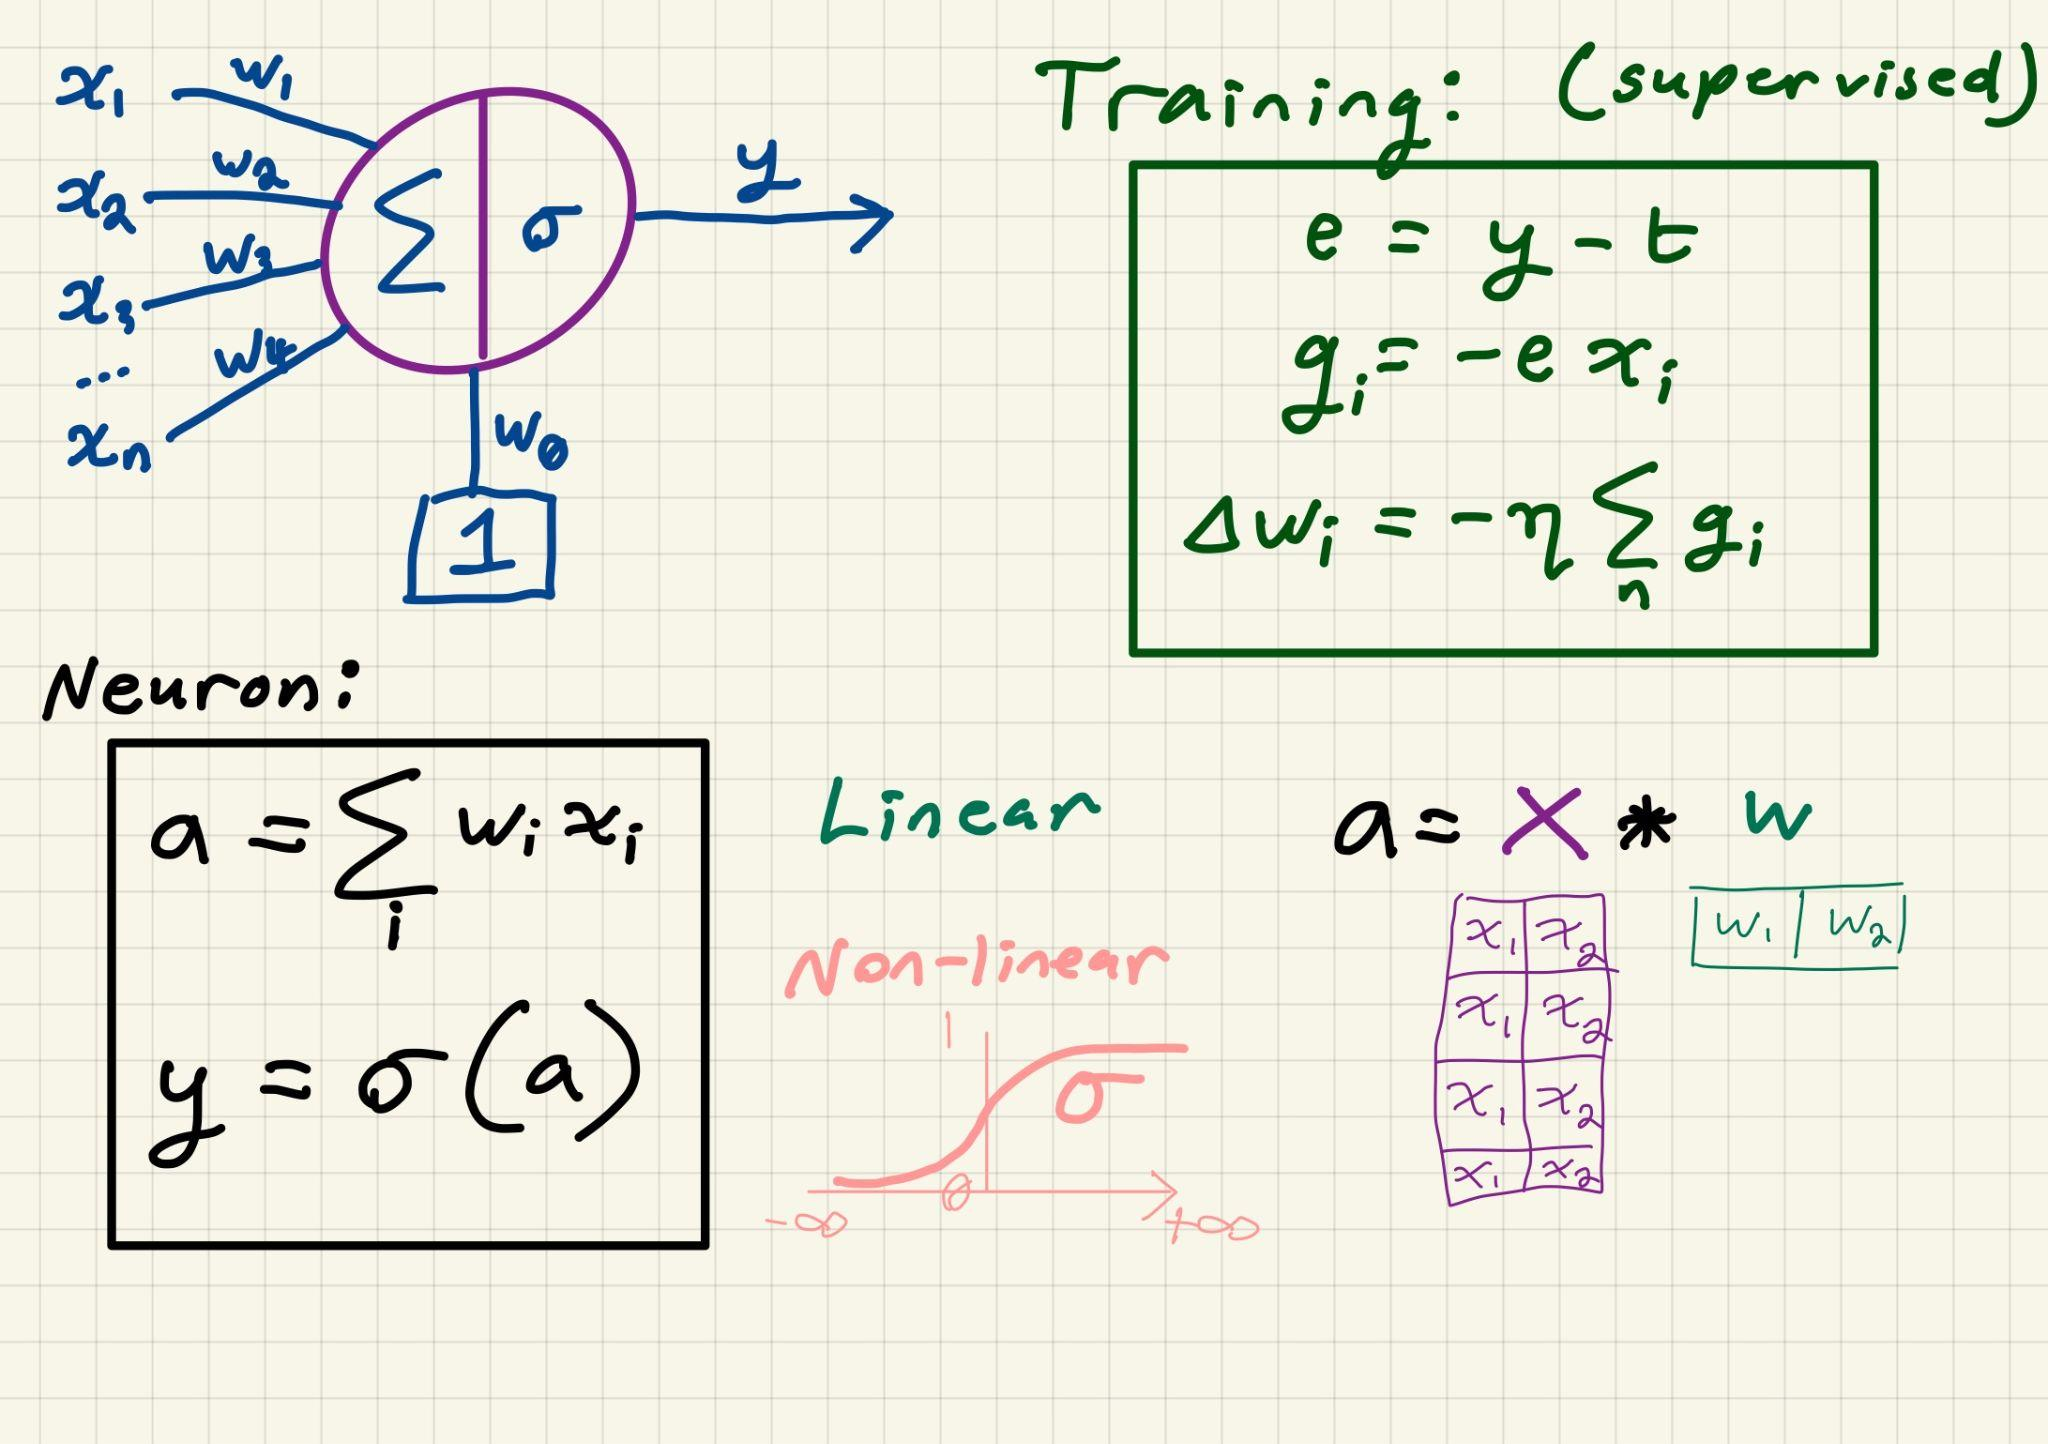 x₁ w₁
x₂ w₂
x₃ w₃
... w₄
xₙ
Σ σ
y
w₀
1
Training: (supervised)
e = y - t
gᵢ = -e xᵢ
Δwᵢ = -η Σₙ gᵢ
Neuron:
a = Σᵢ wᵢ xᵢ
y = σ(a)
Linear
Non-linear
1
σ
0
-∞ +∞
a = X * w
x₁ x₂
x₁ x₂
x₁ x₂
x₁ x₂
w₁ w₂